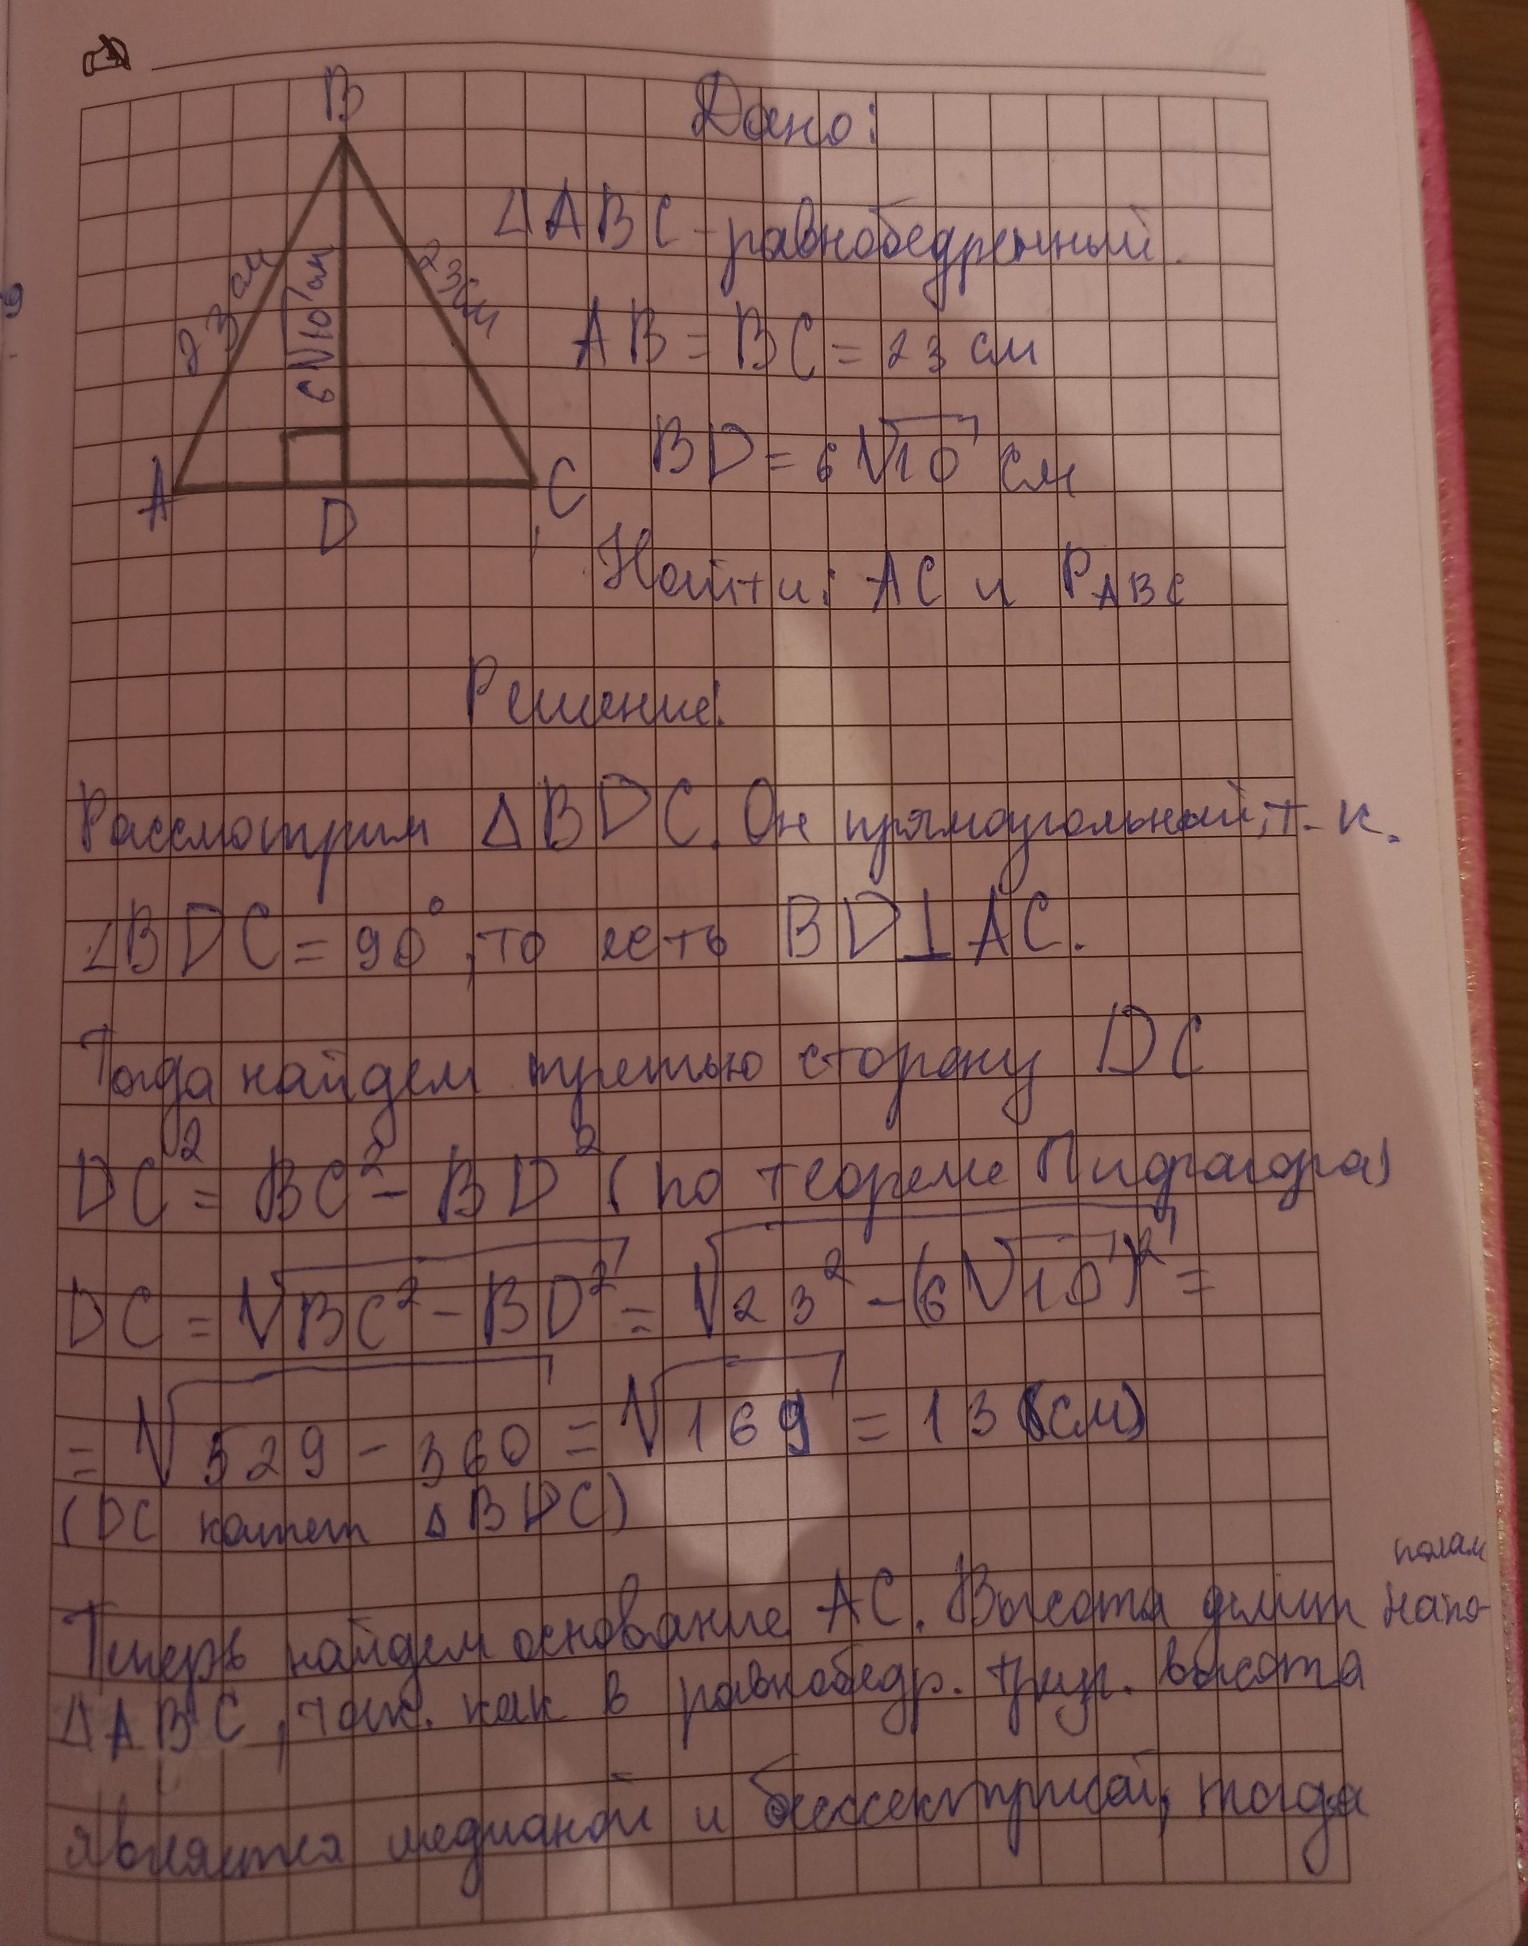 B
Дано:
ΔABC - равнобедренный.
23 см
6√10 см
23 см
AB = BC = 23 см
BD = 6√10 см
A
D
C
Найти: AC и P_ABC
Решение:
Рассмотрим ΔBDC. Он прямоугольный, т. к.
∠BDC = 90°, то есть BD⊥AC.
Тогда найдем третью сторону DC
DC² = BC² - BD² (по теореме Пифагора)
DC = √(BC² - BD²) = √(23² - (6√10)²) =
= √(529 - 360) = √169 = 13 (см)
(DC катет ΔBDC)
Теперь найдем основание AC. Высота делит напо-
полам
ΔABC, так. как в равнобедр. треуг. высота
является медианой и биссектрисой, тогда